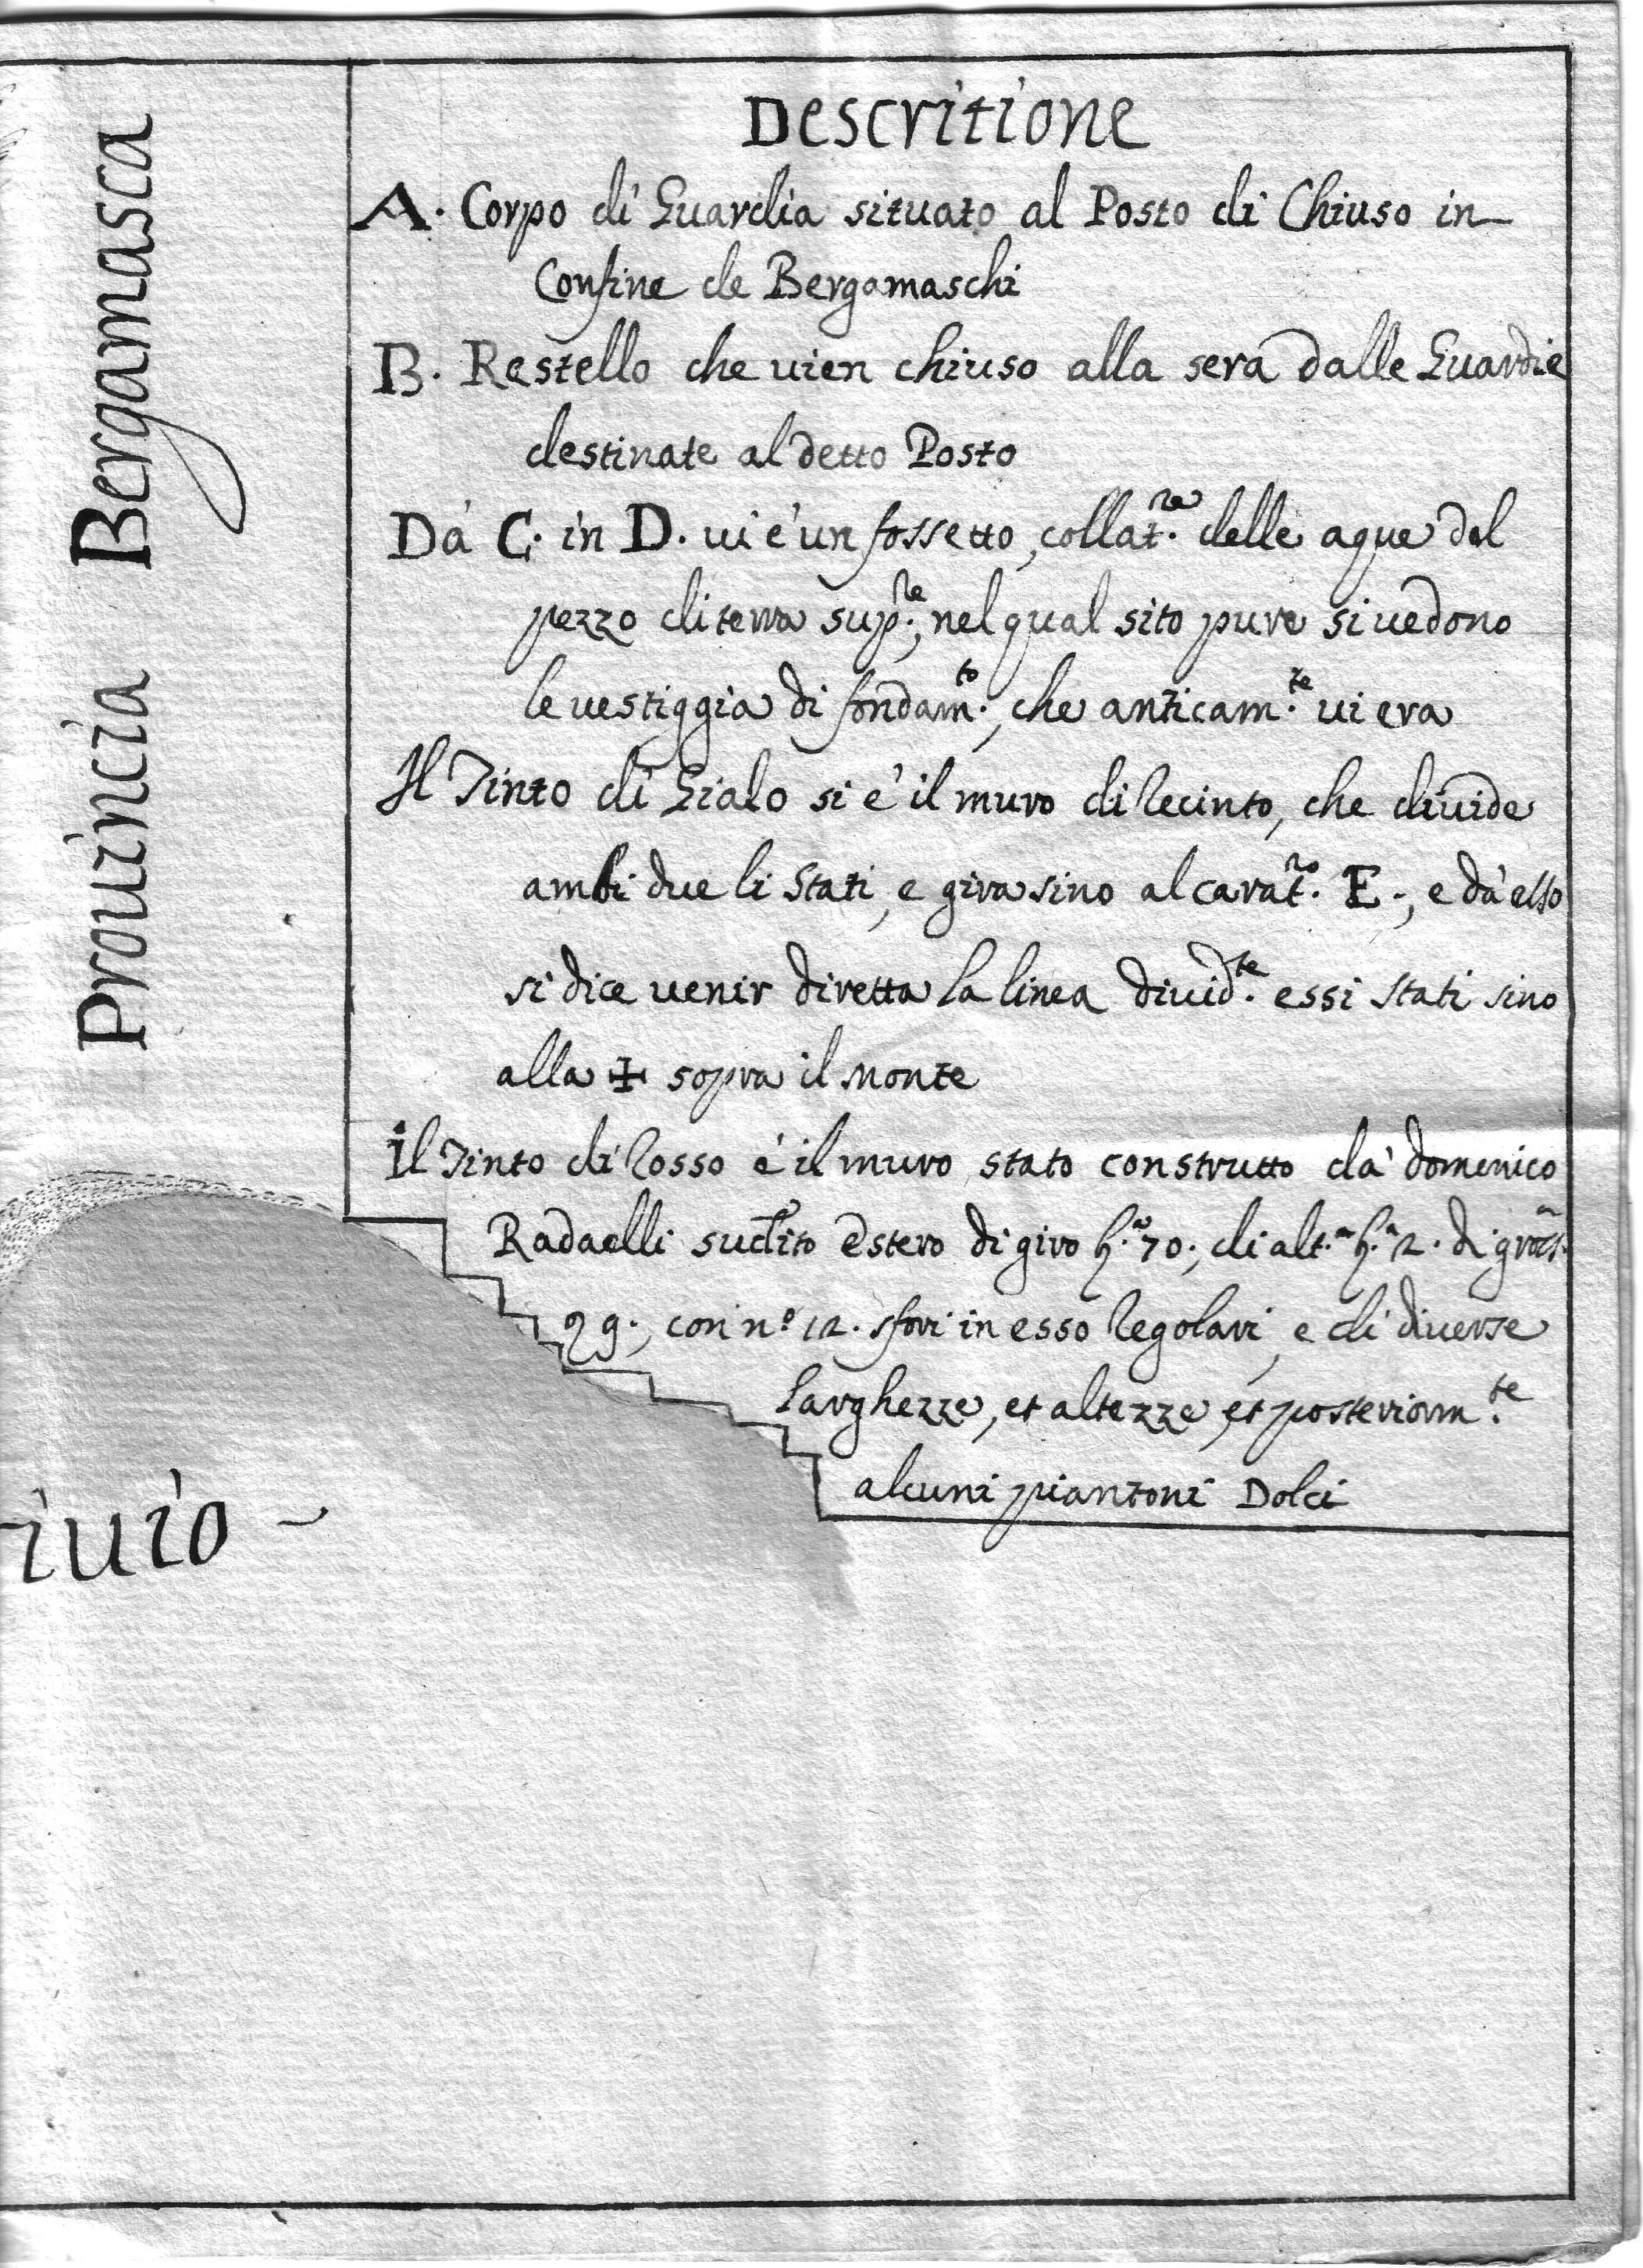 Descritione
A. Corpo di Guardia situato al Posto di Chiuso in
Confine de Bergamaschi
B. Restello che uien chiuso alla sera dalle Guardie
destinate al detto Posto
Da C. in D. ui è un fossetto, collat.re delle aque del
pezzo di terra sup.le, nel qual sito pure si uedono
le uestiggia di fondam.to, che anticam.te ui era
Il Tinto di Gialo si è il muro di Recinto, che diuide
ambi due li Stati, e gira sino al carat.ro E., e da esso
si dice uenir diretta la linea diuid.te essi stati sino
alla + sopra il Monte
Il Tinto di Rosso è il muro stato construtto da Domenico
Radaelli sudito Estero di giro 70., di alt.a 2. di
9., con n.o 12. sfori in esso Regolari, e di diuerse
larghezze, et altezze, et posteriorm.te
alcuni piantoni Dolci
Prouincia Bergamasca
iuio